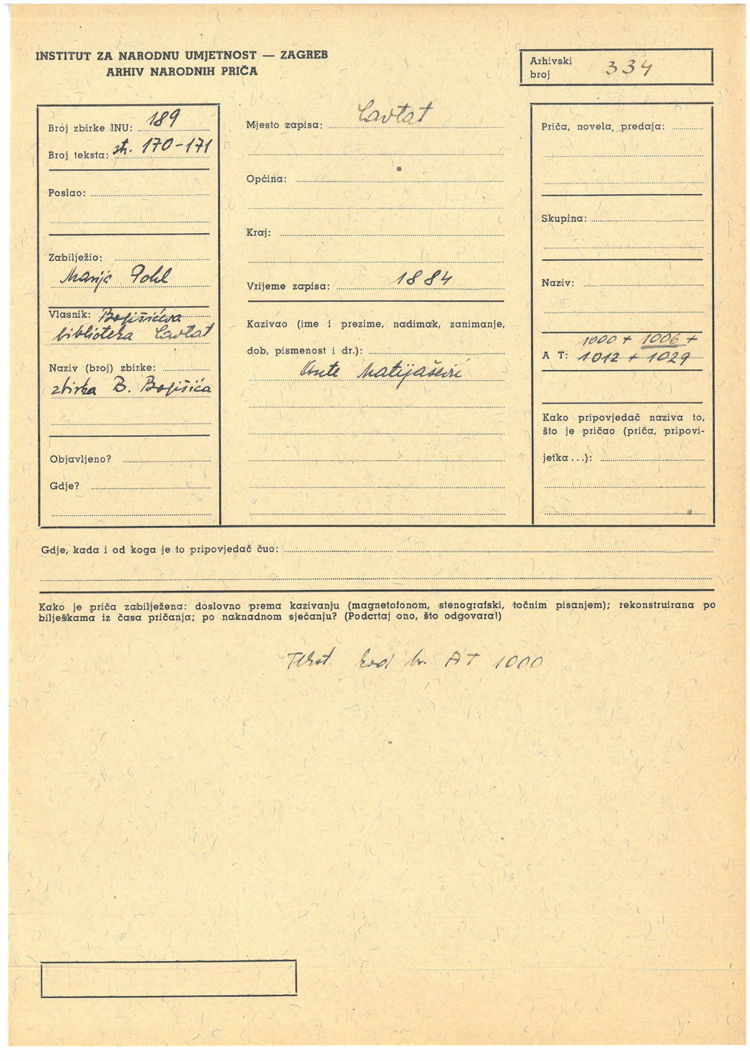 INSTITUT ZA NARODNU UMJETNOST — ZAGREB
ARHIV NARODNIH PRIČA
Arhivski broj 334
Broj zbirke INU: 189
Broj teksta: str. 170-171
Poslao:
Zabilježio:
Marija Pohl
Vlasnik: Bogišićeva
biblioteka Cavtat
Naziv (broj) zbirke:
zbirka B. Bogišića
Objavljeno?
Gdje?
Mjesto zapisa: Cavtat
Općina:
Kraj:
Vrijeme zapisa: 1884
Kazivao (ime i prezime, nadimak, zanimanje,
dob, pismenost i dr.):
Matijašević
Priča, novela, predaja:
Skupina:
Naziv:
1000 + 1006 +
A T: 1012 + 1029
Kako pripovjedač naziva to,
što je pričao (priča, pripovi-
jetka...):
Gdje, kada i od koga je to pripovjedač čuo:
Kako je priča zabilježena: doslovno prema kazivanju (magnetofonom, stenografski, točnim pisanjem); rekonstruirana po
bilješkama iz časa pričanja; po naknadnom sjećanju? (Podcrtaj ono, što odgovara!)
Tekst kod br. AT 1000